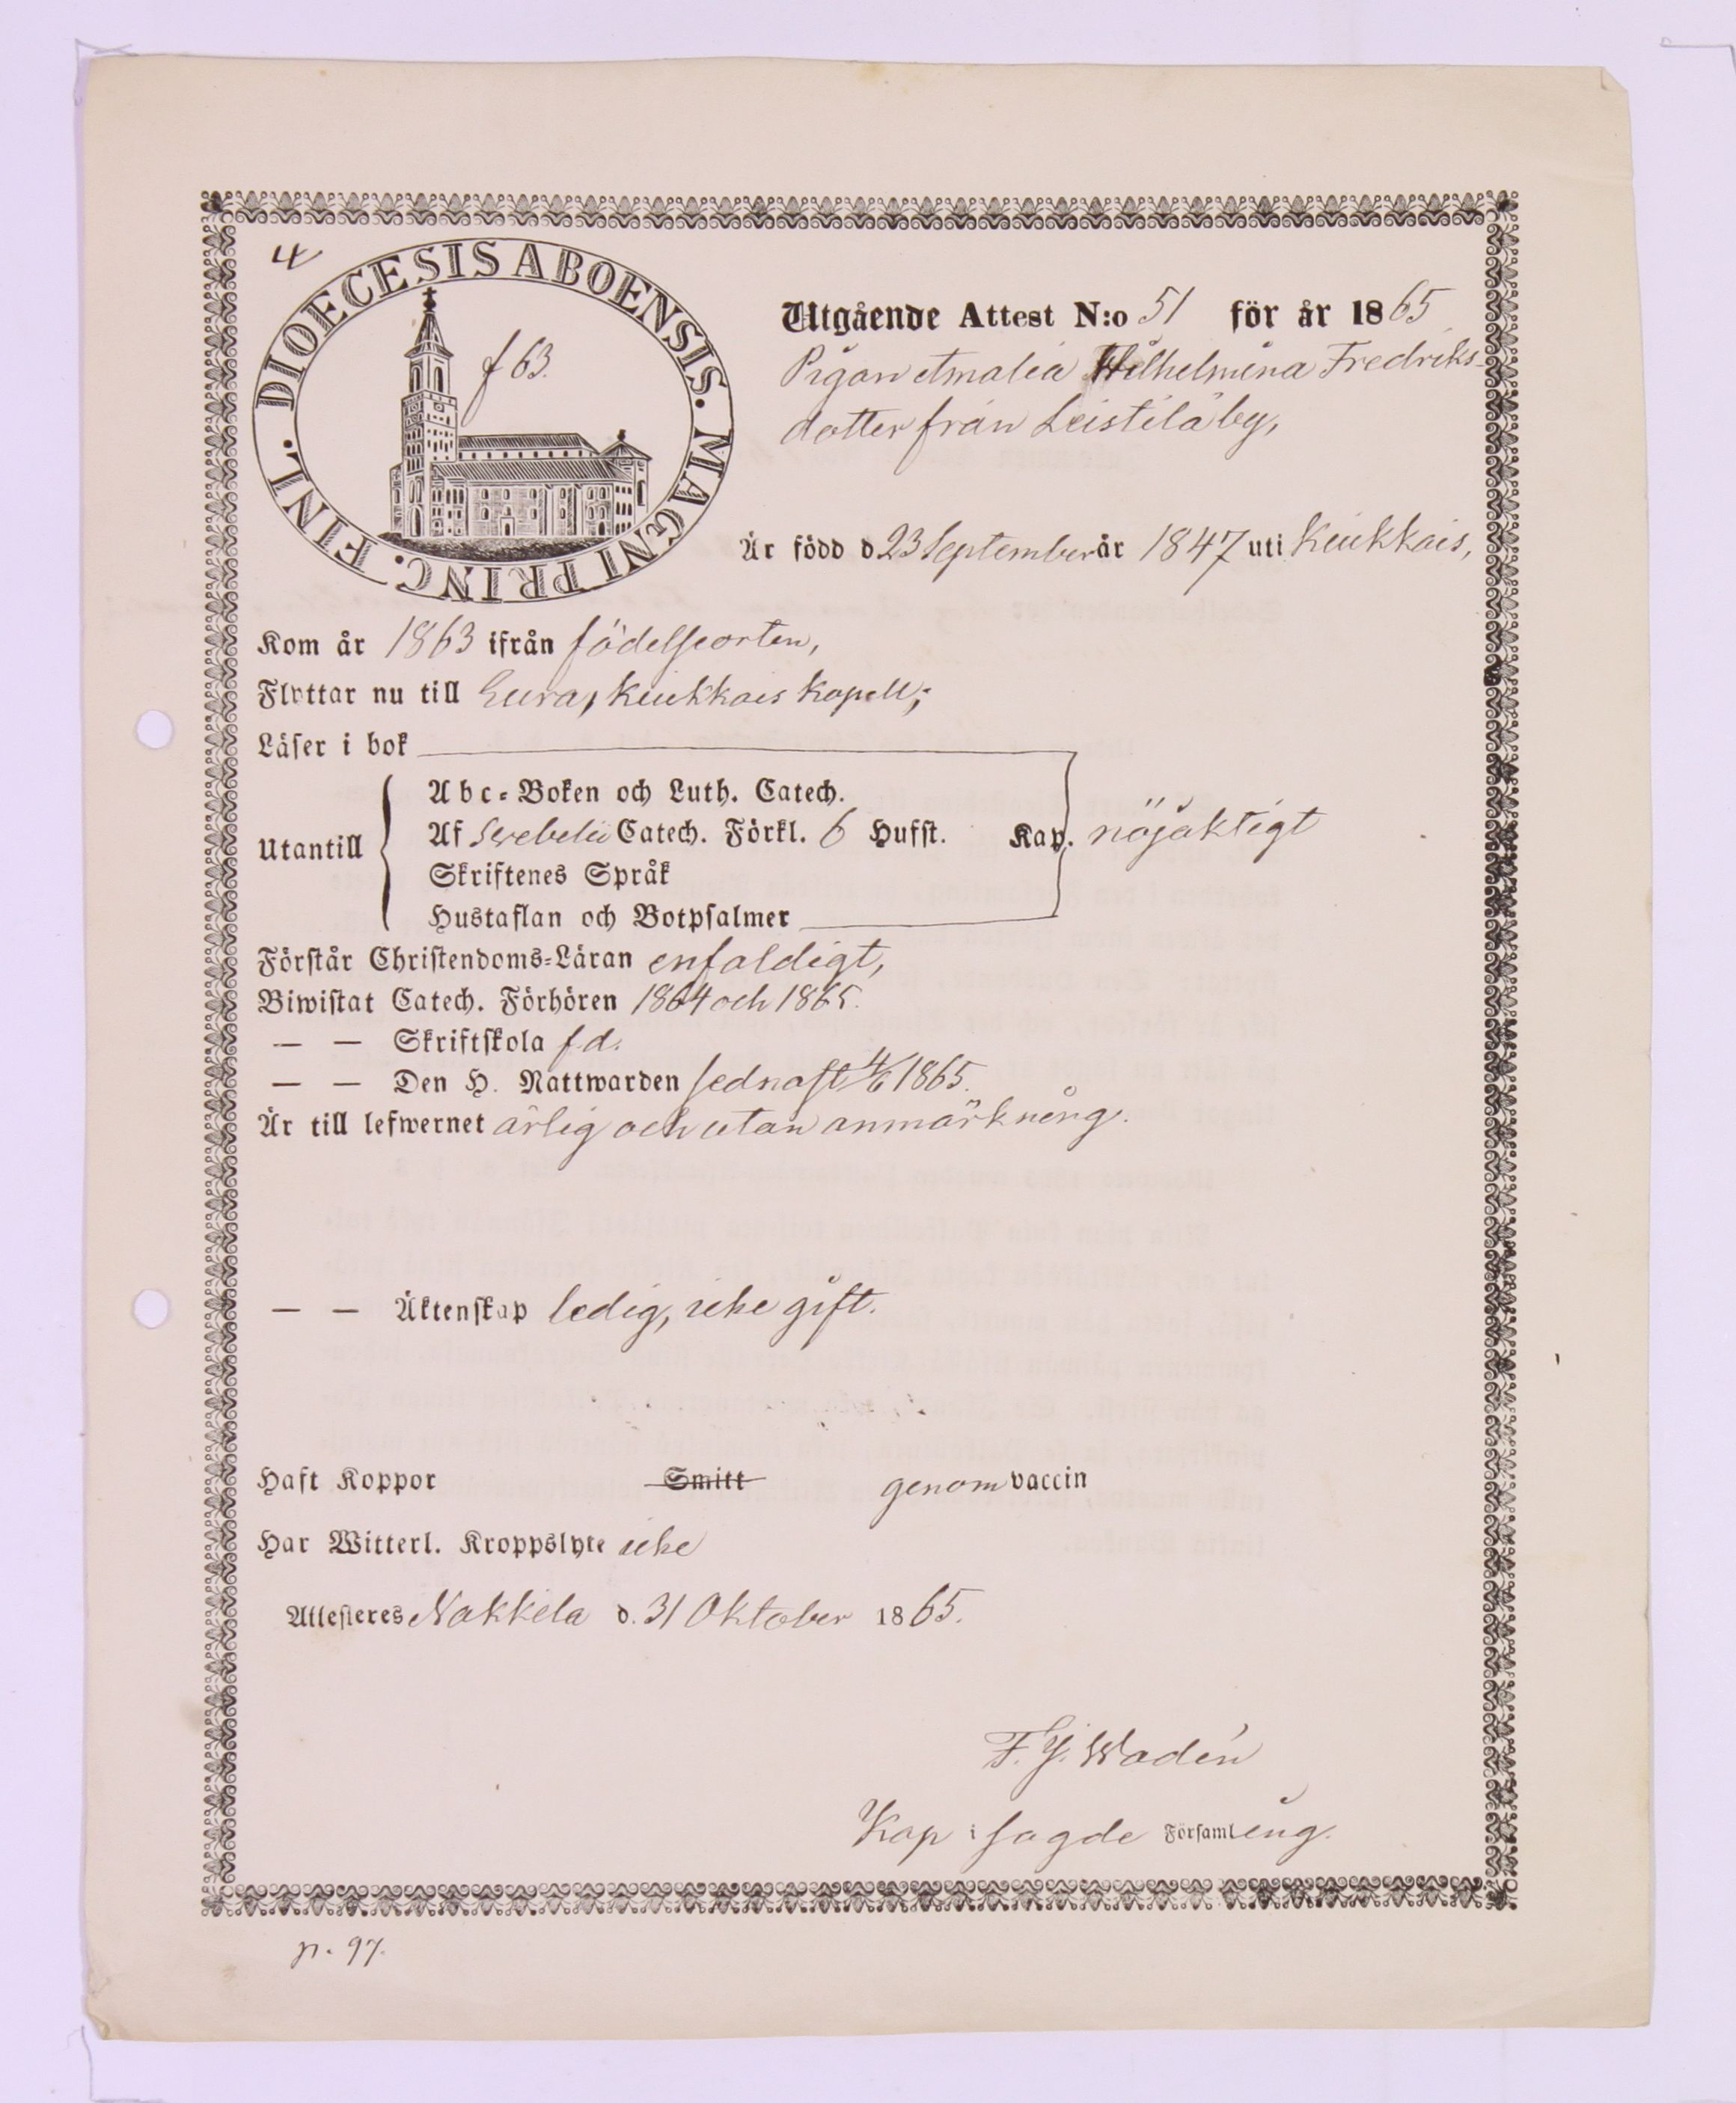 4
DIOECESIS ABOENSIS. MAGNI PRINC. FINL.
f 63.
Utgående Attest N:o 51 för år 1865
Pigan Amalia Wilhelmina Fredriks-
dotter från Leistilä by,
Är född d 23 September år 1847 uti Kiukkais,
Kom år 1863 ifrån födelseorten,
Flyttar nu till Eura, Kiukkais Kapell;
Läser i bok
Utantill
Abc-Boken och Luth. Catech.
Af Svebelii Catech. Förkl. 6 Hufst. Kap. nöjaktigt
Skriftenes Språk
Hustaflan och Botpsalmer
Förstår Christendoms-Läran enfaldigt,
Biwistat Catech. Förhören 1864 och 1865.
— — Skriftskola f. d.
— — Den H. Nattwarden sednast 4/6 1865.
Är till lefwernet ärlig och utan anmärkning.
— — Äktenskap ledig, icke gift.
Haft Koppor Smitt genom vaccin
Har Witterl. Kroppslyte icke
Attesteres Nakkila d. 31 Oktober 1865.
F. J. Wadén
Kap i sagde Församling.
p. 97.